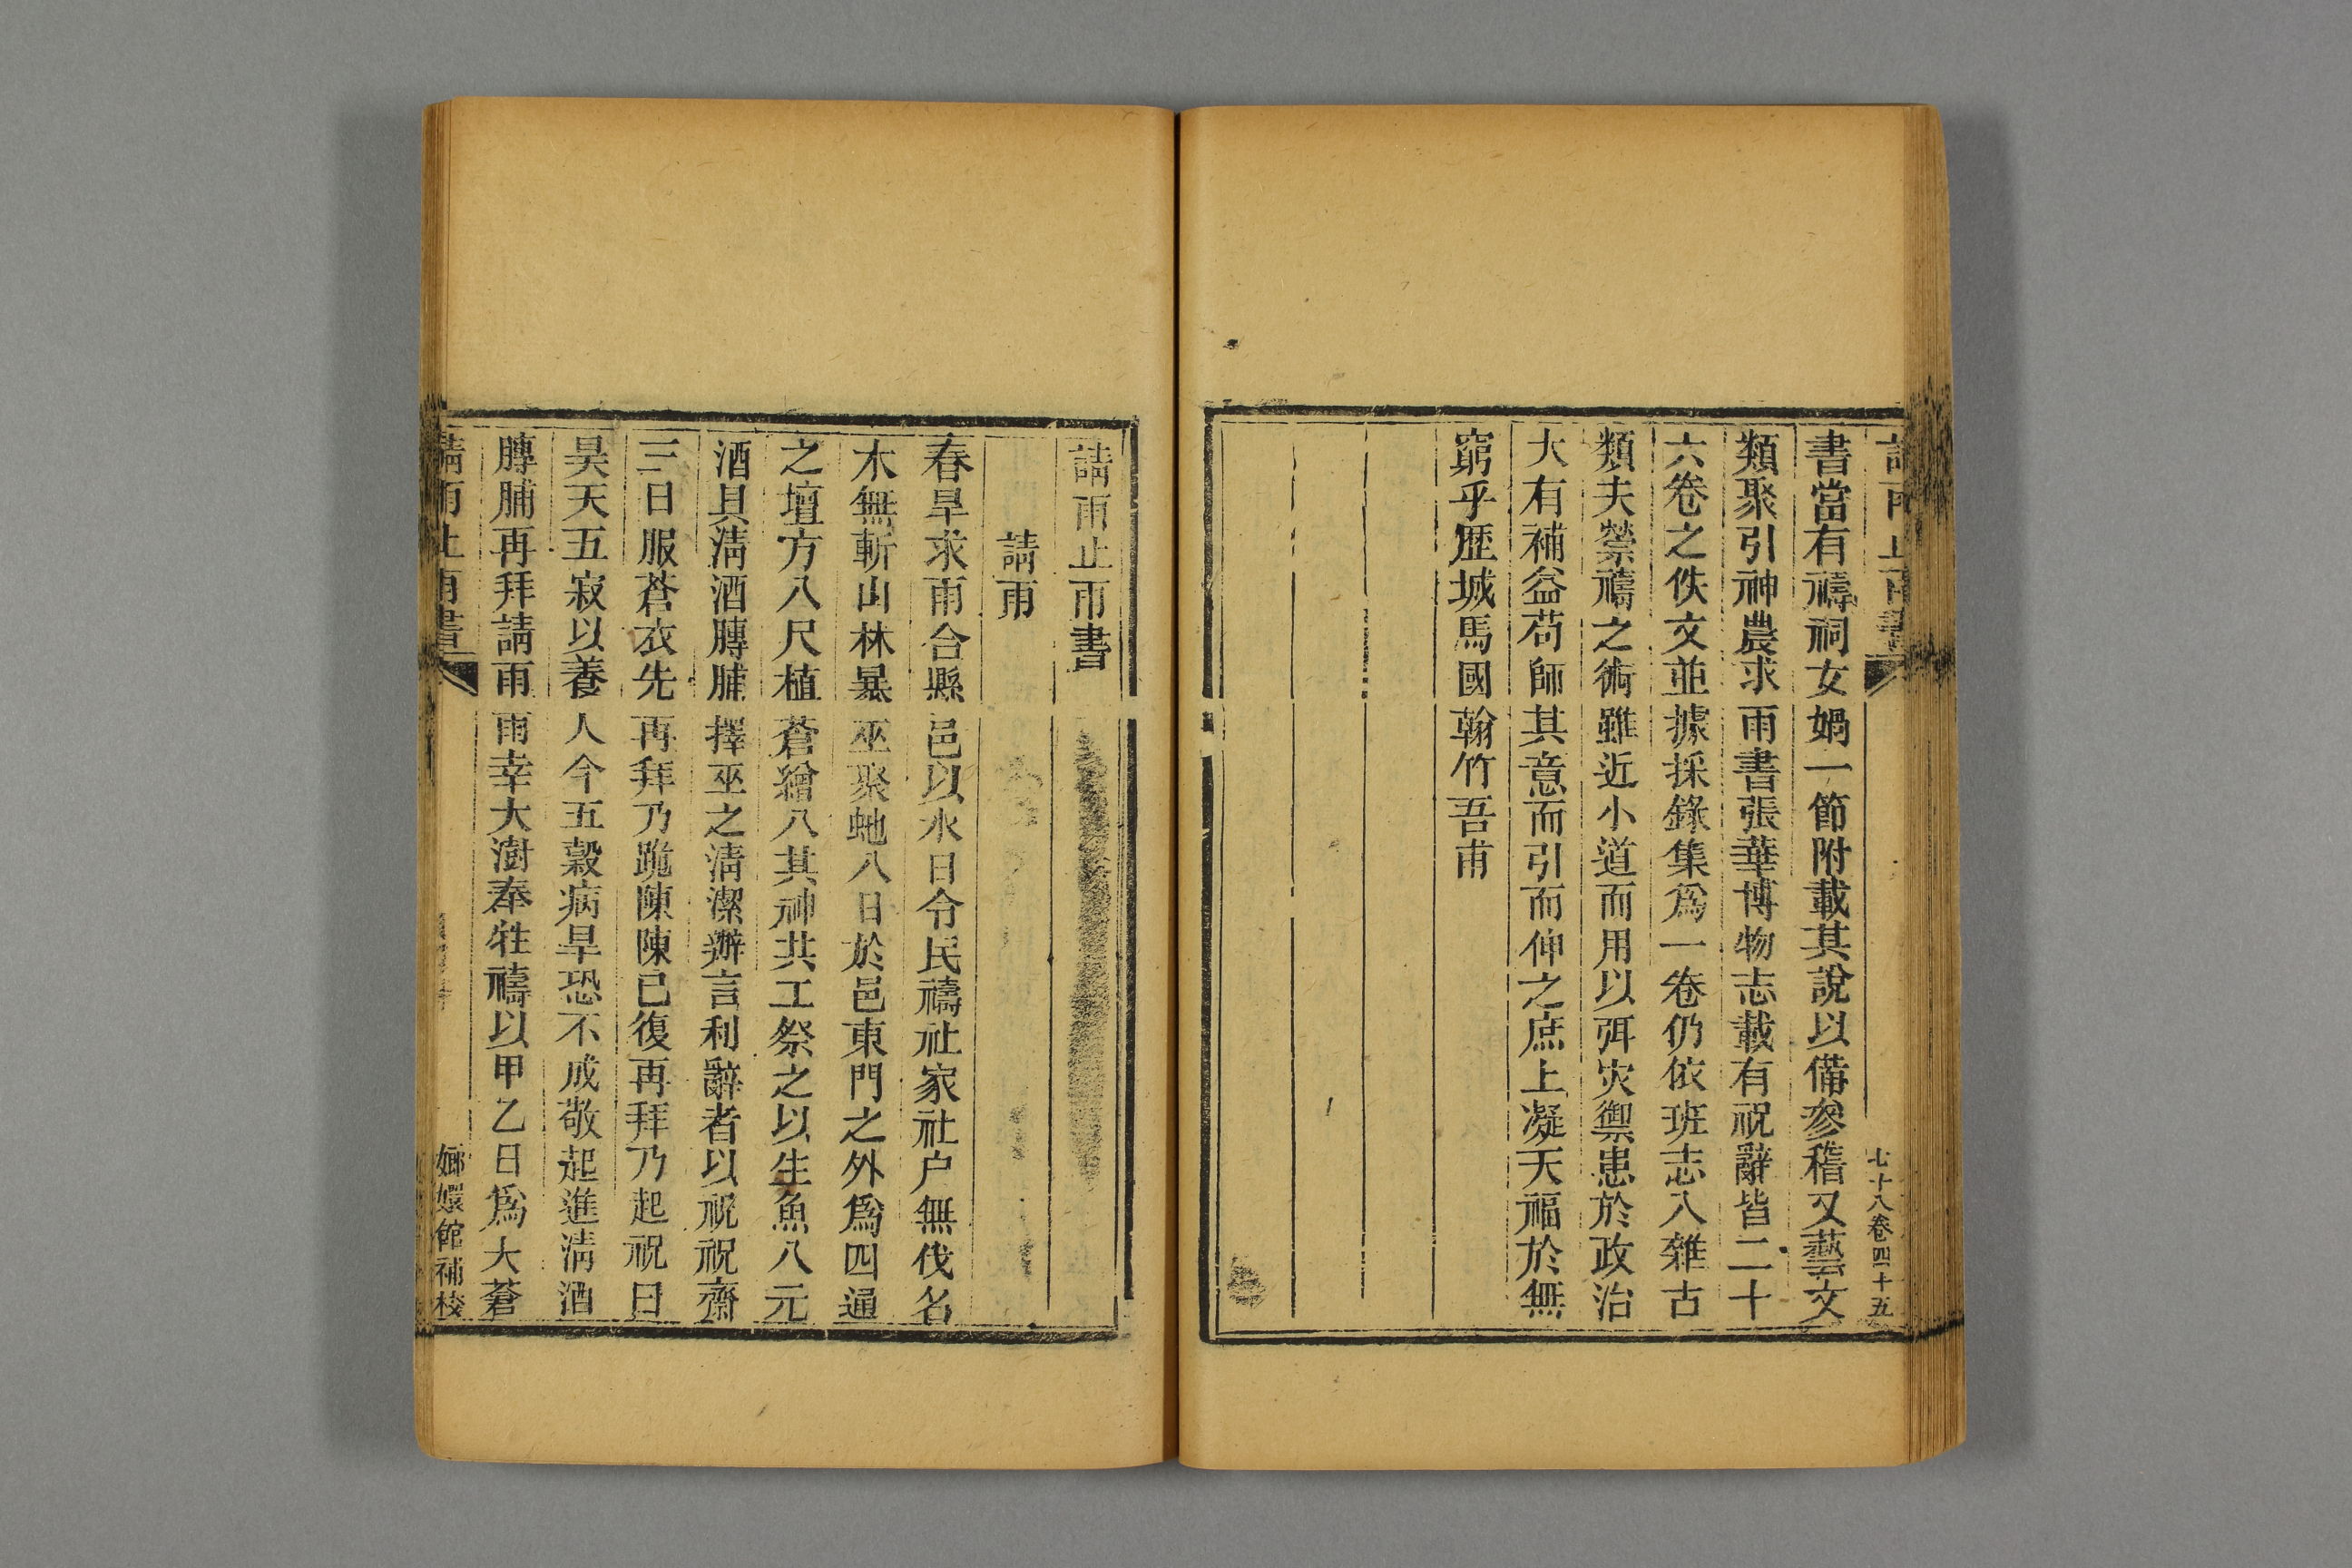 請雨止雨書
七十八卷四十五
書當有禱祠女媧一節附載其說以備參稽又藝文
類聚引神農求雨書張華博物志載有祝辭皆二十
六卷之佚文並據採錄集爲一卷仍依班志入雜古
類夫禜禱之術雖近小道而用以弭灾禦患於政治
大有補益苟師其意而引而伸之庶上凝天福於無
窮乎歷城馬國翰竹吾甫
請雨止雨書
請雨
春旱求雨合縣邑以水日令民禱社家社户無伐名
木無斬山林暴巫聚虵八日於邑東門之外爲四通
之壇方八尺植蒼繒八其神共工祭之以生魚八元
酒具淸酒膊脯擇巫之淸潔辯言利辭者以祝祝齋
三日服蒼衣先再拜乃跪陳陳已復再拜乃起祝曰
昊天五穀以養人今五穀病旱恐不成敬起進淸酒
膊脯再拜請雨雨幸大澍奉牲禱以甲乙日爲大蒼
請雨止雨書
嫏嬛館補校